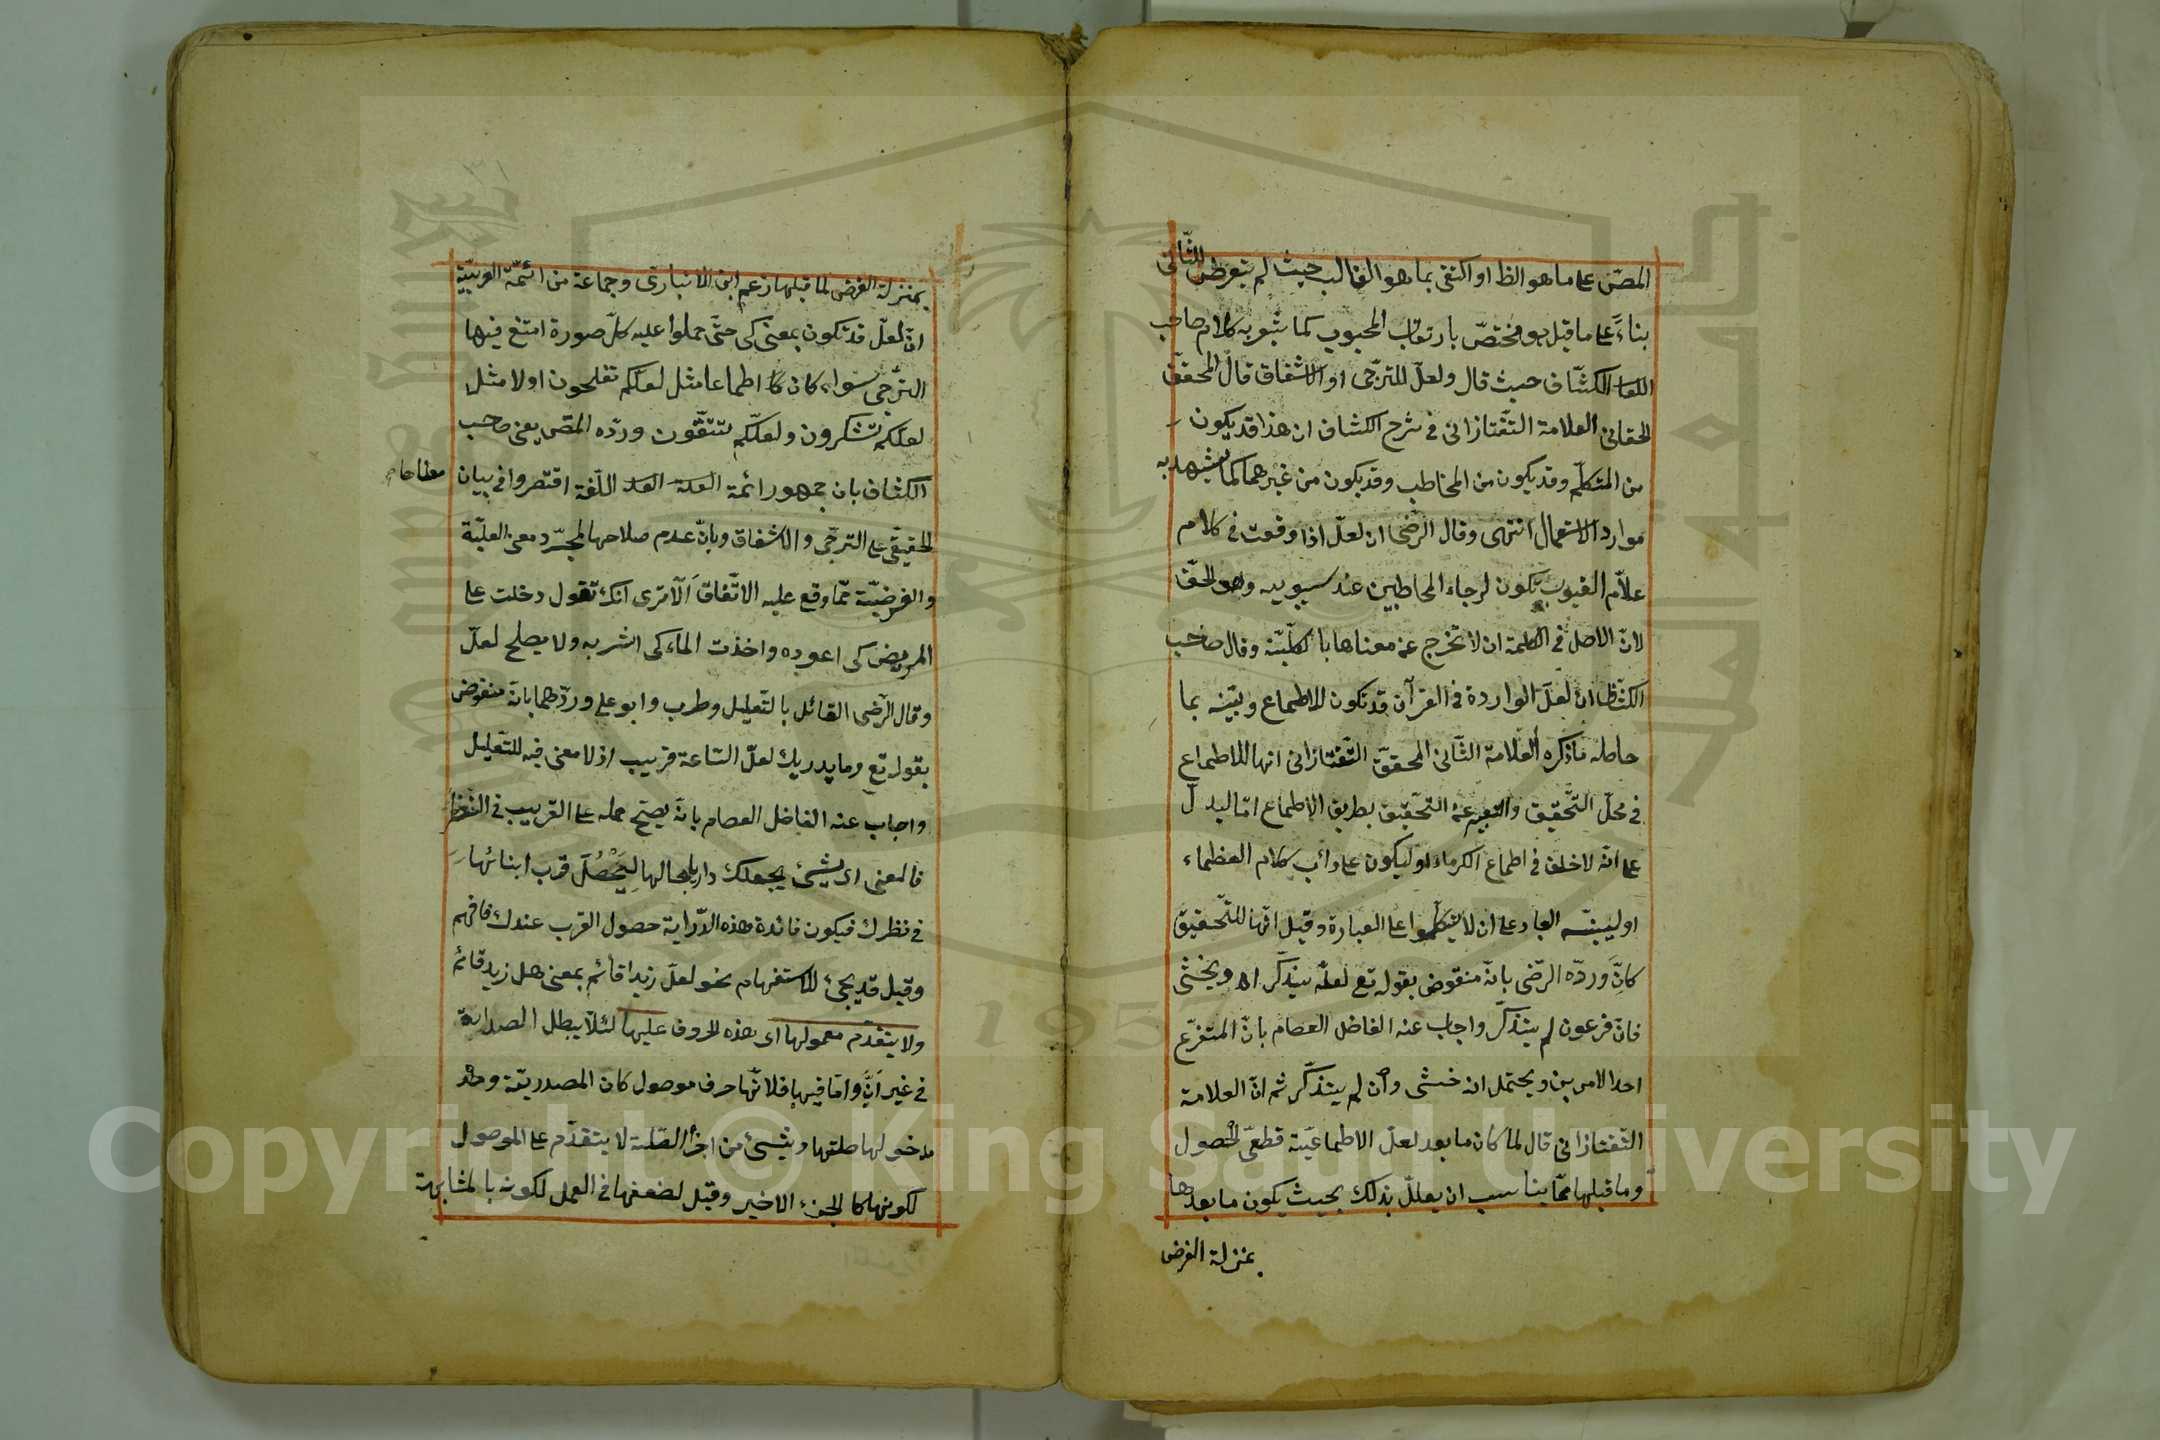 المصّ على ما هو الظ او اكتفى بما هو الغالب حيث لم يتعرض للثّانى
بناءً على ما قيل هو مختصّ بارتقاب المحبوب كما يشعر به كلام صاحب
الكشّاف حيث قال ولعلّ للترّجى او الاشفاق قال المحقق
الحقانى العلامة التّفتازانى فى شرح الكشاف ان هذا قد يكون
من المتكلّم وقد يكون من المخاطب وقد يكون من غيرهما كما يشهد به
موارد الاستعمال انتهى وقال الرضى ان لعلّ اذا وقعت فى كلام
علاّم الغيوب تكون لرجاء المخاطبين عند سيبويه وهو الحقّ
لانّ الاصل فى الكلمة ان لا تخرج عن معناها بالكلّيّة وقال صاحب
الكشّاف ان لعلّ الواردة فى القرآن قد تكون للاطماع وبيّنه بما
حاصله ما ذكره العلامة الثّانى المحقّق التّفتازانى انها للاطماع
فى محلّ التّحقيق والتعبير عن التحقيق بطريق الاطماع امّا ليدلّ
على انّه لا خلف فى اطماع الكرماء او ليكون على دأب كلام العظماء
او لينبّه العباد على ان لا يتّكلوا على العبارة وقيل انّها للتّحقيق
كانّ وردّه الرّضى بانّه منقوض بقوله تع لعلّه يتذكّر او يخشى
فانّ فرعون لم يتذكّر واجاب عنه الفاضل العصام بانّ المتفرّع
احد الامرين ويحتمل انه خشى وان لم يتذكّر ثم انّ العلامة
التّفتازانى قال لما كان ما بعد لعلّ الاطماعيّة قطعىّ الحصول
وما قبلها ممّا يناسب ان يعلّل بذلك بحيث يكون ما بعدها
بمنزلة الغرض
بمنزلة الغرض لما قبلها زعم ابن الانبارى وجماعة من ائمّة العربيّة
انّ لعلّ قد تكون بمعنى كى حتّى حملوا عليه كلّ صورة امتنع فيها
الترّجى سواء كان اطماعا مثل لعلّكم تفلحون او لا مثل
لعلّكم تشكرون ولعلّكم تتّقون وردّه المصّ يعنى صاحب
الكشاف بان جمهور ائمة اللّغة اقتصروا فى بيان معناها
الحقيقّى على الترجّى والاشفاق وبانّ عدم صلاحها لمجرّد معنى العليّة
والغرضيّة ممّا وقع عليه الاتّفاق ألا ترى انّك تقول دخلت على
المريض كى اعوده واخذت الماء كى اشربه ولا يصلح لعلّ
وقال الرّضى القائل بالتّعليل قطرب وابو على وردّهما بانّه منقوض
بقوله تع وما يدريك لعلّ السّاعة قريب اذ لا معنى فيه للتّعليل
واجاب عنه الفاضل العصام بانّه يصحّ حمله على القريب فى النّظر
فالمعنى اى شئ يجعلك داريا بحالها ليَحْصُلَ قرب
فى نظرك فيكون فائدة هذه الدّراية حصول القرب عندك فافهم
وقيل قد يجئ للاستفهام نحو لعلّ زيدا قائم بمعنى هل زيد قائم
ولا يتقدّم معمولها اى هذه الحروف عليها لئلاّ يبطل الصدارة
فى غير أنّ وامّا فيها فلانّها حرف موصول كان المصدريّة و
مدخولها صلتها وشئ من اجزأ الصّلة لا يتقدّم على الموصول
لكونها كالجزء الاخير وقيل لضعفها فى العمل لكونه بالمشابهة
Copyright © King Saud University